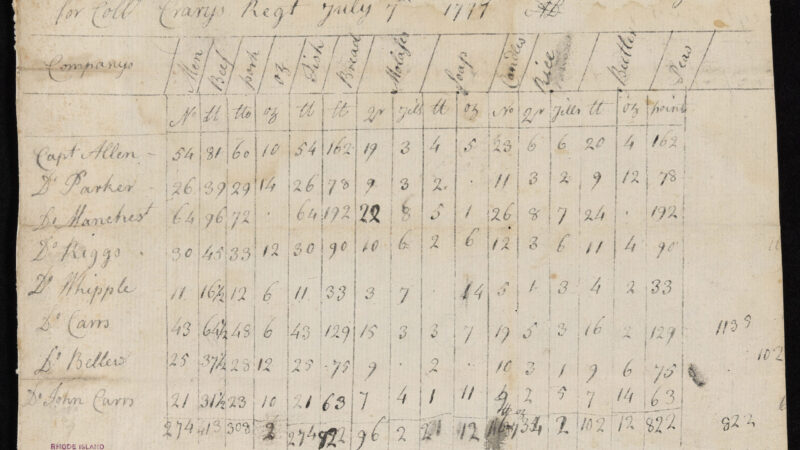 for Coll° Crarys Regt July 7 1777
Companys Men Beef pork oz Fish Bread Molases Soap Candles Rice Butter Peas
N° tt tto oz tt tt qr Jills tt oz No qr Jills tt oz points
Capt Allen 54 81 60 10 54 162 19 3 4 5 23 6 6 20 4 162
D° Parker 26 39 29 14 26 78 9 3 2 . 11 3 2 9 12 78
D° Manchest 64 96 72 . 64 192 22 8 5 1 26 8 7 24 . 192
D° Riggs 30 45 33 12 30 90 10 6 2 6 12 3 6 11 4 90
D° Whipple 11 16½ 12 6 11 33 3 7 14 5 1 3 4 2 33
D° Carrs 43 64½ 48 6 43 129 15 3 3 7 19 5 3 16 2 129 1135
D° Bellew 25 37½ 28 12 25 75 9 . 2 . 10 3 1 9 6 75
D° John Carrs 21 31½ 23 10 21 63 7 4 1 11 9 2 5 7 14 63
274 308 2 274 822 96 2 21 12 2 102 12 822 822
RHODE ISLAND